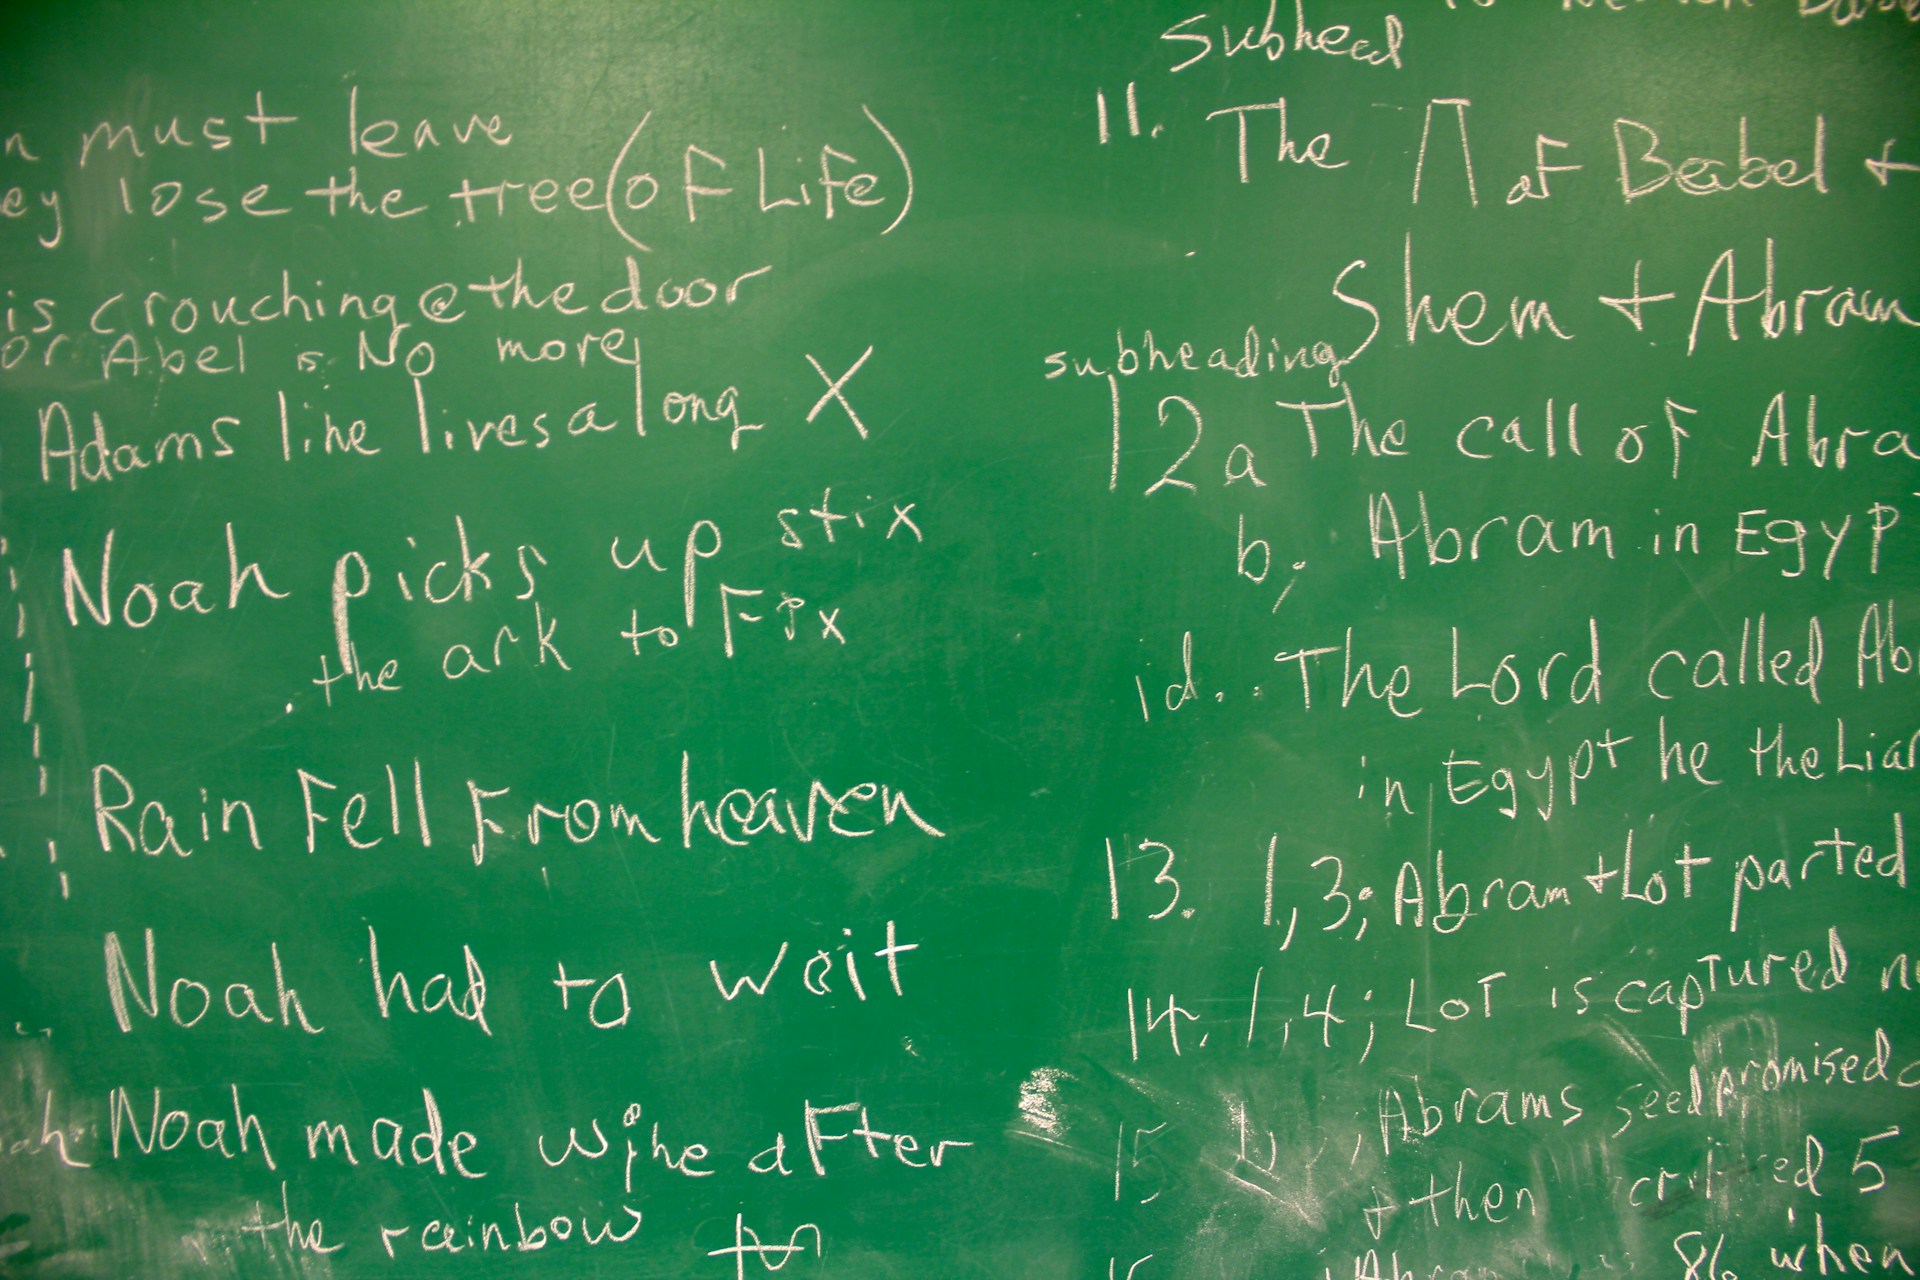 n must leave
ey lose the tree (of Life)
is crouching @ the door
or Abel is No more
Adams line lives along X
Noah picks up stix
the ark to Fix
Rain Fell From heaven
Noah had to wait
Noah made wine after
the rainbow
Subhead
11. The Π of Babel +
Shem + Abram
subheading
12a The call of Abra
b, Abram in Egyp
1d.. The Lord called Ab
in Egypt he the Liar
13. 1,3; Abram + Lot parted
14. 1,4; Lot is captured n
15 Abrams seed promised
+ then 5
86 when